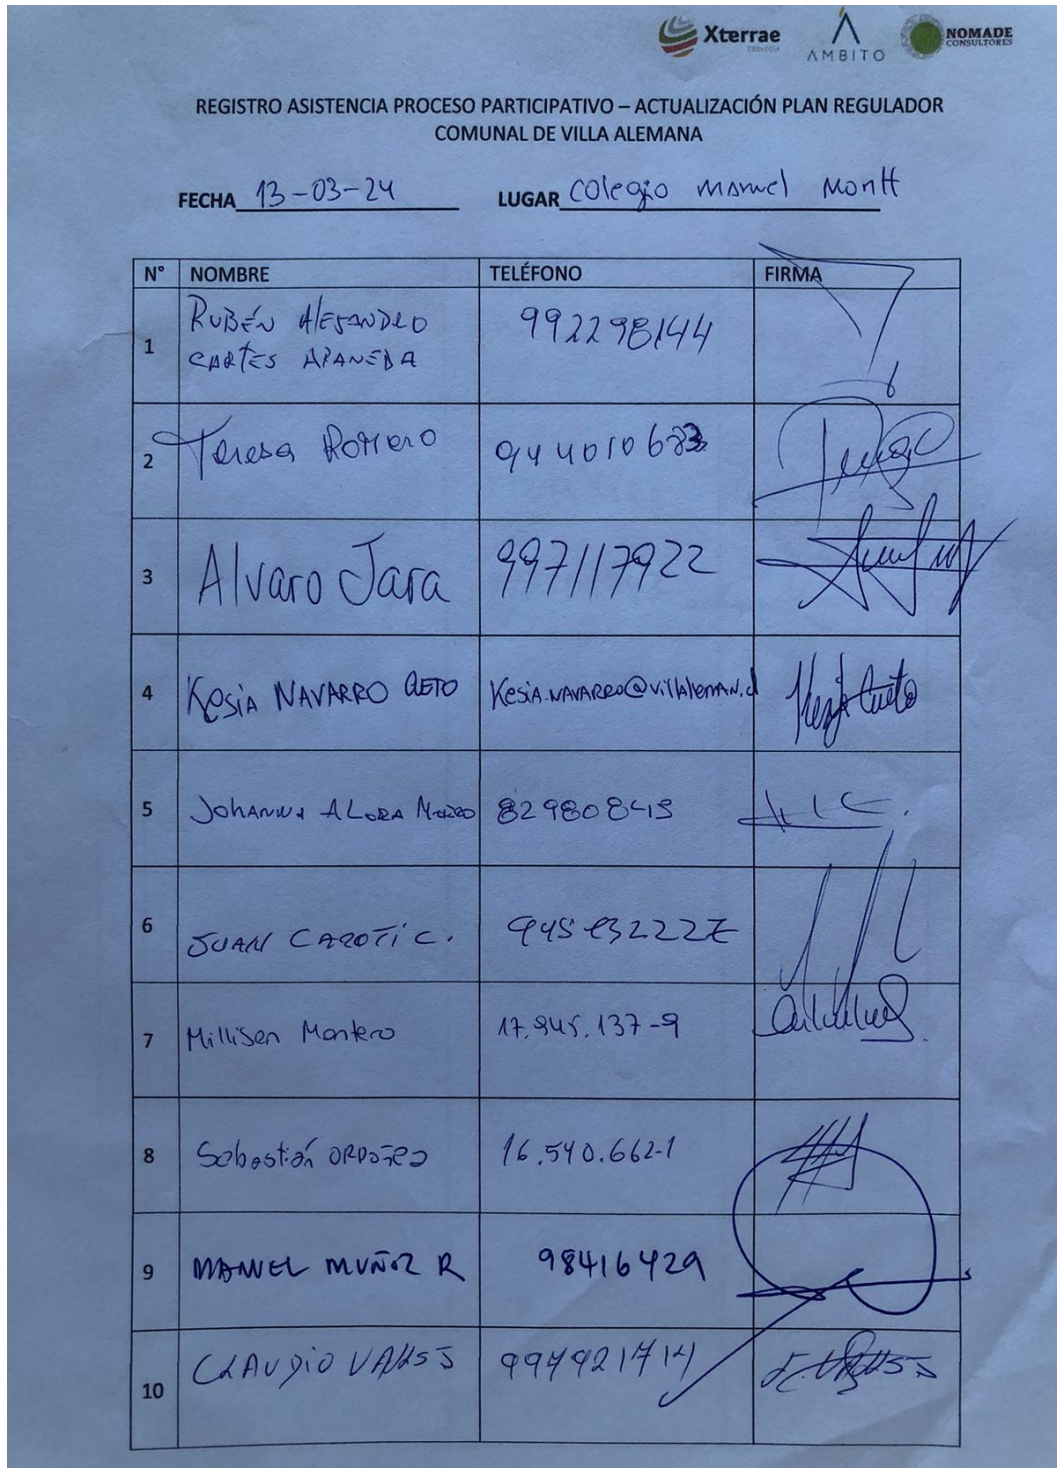 Xterrae
AMBITO
NOMADE
CONSULTORES
REGISTRO ASISTENCIA PROCESO PARTICIPATIVO – ACTUALIZACIÓN PLAN REGULADOR
COMUNAL DE VILLA ALEMANA
FECHA 13-03-24 LUGAR Colegio Manuel Montt
N° NOMBRE TELÉFONO FIRMA
1 RUBÉN ALEJANDRO 992298144
CARTES
2 Teresa Romero
3 Alvaro Jara 997117922
4 Kesia NAVARRO CUETO Kesia.NAVARRO@villalemana.cl Kesia Cueto
5 JOHANNA
6 JUAN
7 Millisen Montero 17.945.137-9
8 Sebastián ORDOÑEZ 16.540.662-1
9 MANUEL MUÑOZ R 98416429
10 CLAUDIO